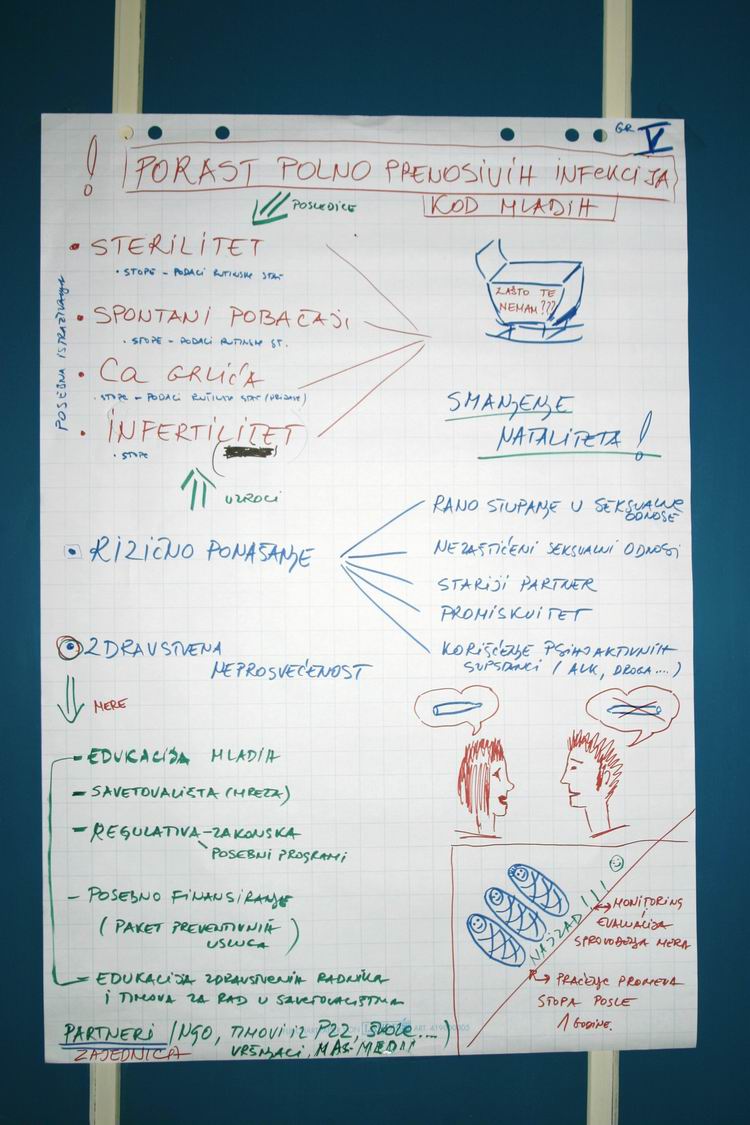 GR V
! PORAST POLNO PRENOSIVIH INFEKCIJA
KOD MLADIH
POSLEDICE
• STERILITET
• STOPE - PODACI RUTINSKE STAT
• SPONTANI POBAČAJI
• STOPE - PODACI RUTINSK ST.
• Ca GRLIĆA
• STOPE - PODACI RUTINSK STAT
• INFERTILITET
• STOPE
POSEBNA ISTRAŽIVANJA
ZAŠTO TE
NEMAM???
SMANJENJE
NATALITETA!
UZROCI
• RIZIČNO PONAŠANJE
RANO STUPANJE U SEKSUALNE
ODNOSE
NEZAŠTIĆENI SEKSUALNI ODNOSI
STARIJI PARTNER
PROMISKUITET
KORIŠĆENJE PSIHOAKTIVNIH
SUPSTANCI (ALK, DROGA....)
ZDRAVSTVENA
NEPROSVEĆENOST
MERE
- EDUKACIJA MLADIH
- SAVETOVALIŠTA (MREŽA)
- REGULATIVA - ZAKONSKA
POSEBNI PROGRAMI
- POSEBNO FINANSIRANJE
(PAKET PREVENTIVNIH
USLUGA)
- EDUKACIJA ZDRAVSTVENIH RADNIKA
I TIMOVA ZA RAD U SAVETOVALIŠTIMA
PARTNERI (NGO, TIMOVI IZ PZZ, ŠKOLE...)
ZAJEDNICA VRŠNJACI, MAS MEDII
NAJZAD!!!
MONITORING
I
EVALUACIJA
SPROVOĐENJA MERA
PRAĆENJE PROMENA
STOPA POSLE
1 GODINE.